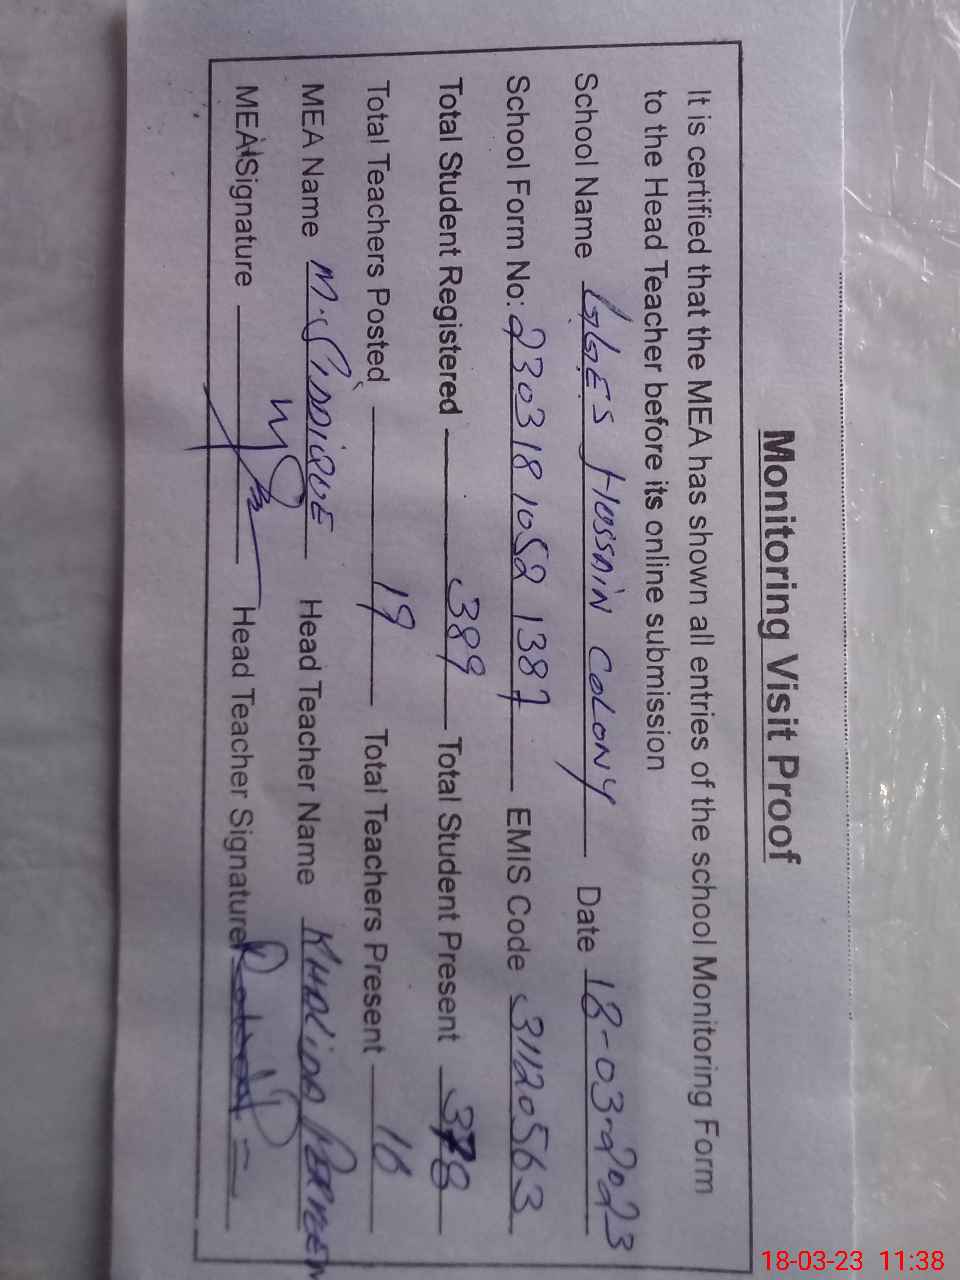 Monitoring Visit Proof
It is certified that the MEA has shown all entries of the school Monitoring Form
to the Head Teacher before its online submission
School Name GGES HUSSAIN COLONY Date 18-03-2023
School Form No: 230318 1052 1387 EMIS Code 31120563
Total Student Registered 389 Total Student Present 378
Total Teachers Posted 19 Total Teachers Present 16
MEA Name M. SIDDIQUE Head Teacher Name KHALIDA PERVEEN
MEA Signature Head Teacher Signature
18-03-23 11:38